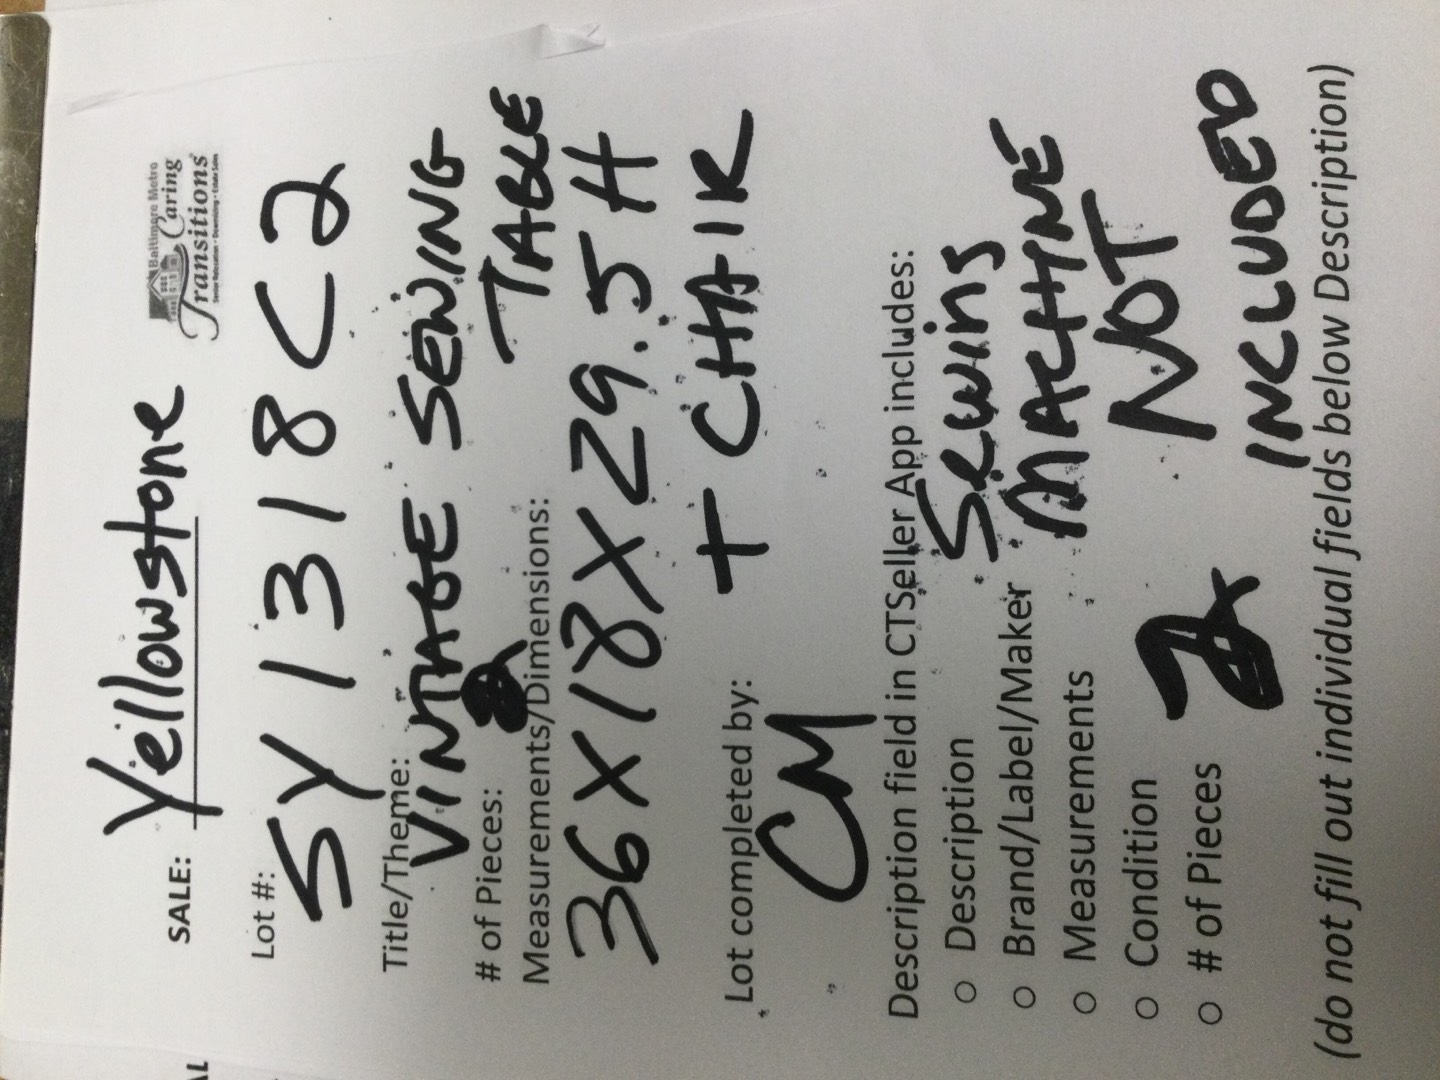 SALE: Yeillowstone
Baltimore Metro
Caring
Transitions
Lot #:
5Y1318C2
Title/Theme:
VINTAGE SEWING
TABLE
# of Pieces: 2
Measurements/Dimensions:
36X18X29.5H
+ CHAIR
Lot completed by:
CM
Description field in CTSeller App includes:
○ Description
○ Brand/Label/Maker
○ Measurements
○ Condition
○ # of Pieces 2
Sewing
MACHINE
NOT
INCLUDED
(do not fill out individual fields below Description)